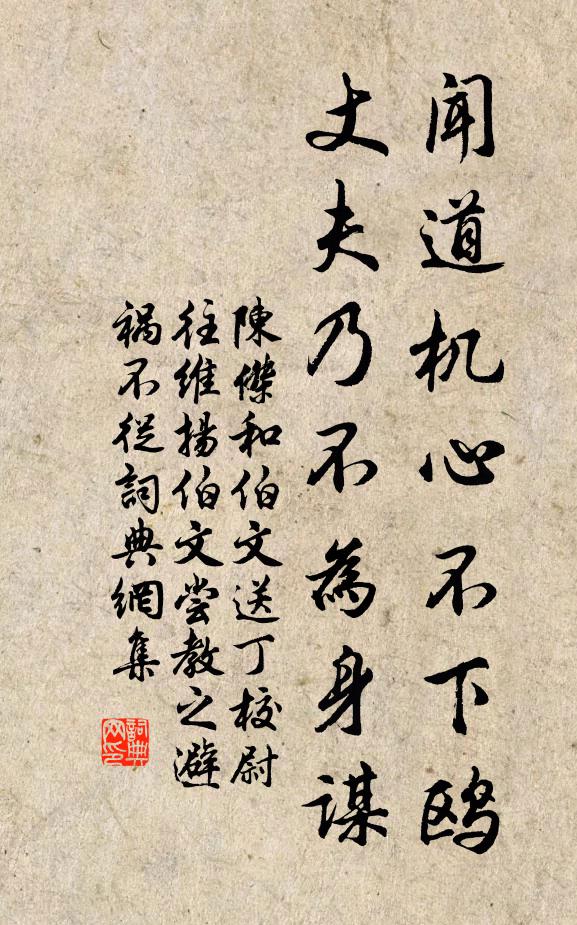 闻道机心不下鸥
丈夫乃不為身謀
陳傑和伯文送丁校尉
往維揚伯文嘗教之避
禍不從詞典網集
詞典
网印